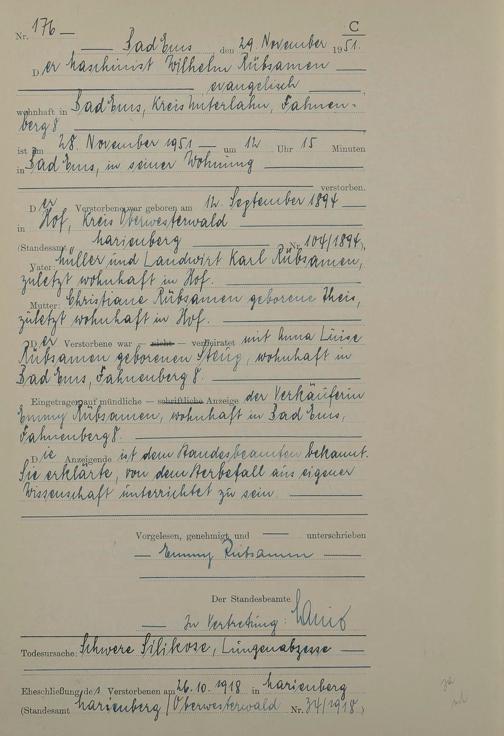 C
Nr. 176
Bad Ems, den 29. November 1951.
Der Maschinist Wilhelm Rübsamen
evangelisch
wohnhaft in Bad Ems, Kreis Unterlahn, Fahnen-
berg 8
ist am 28. November 1951 um 12 Uhr 15 Minuten
in Bad Ems, in seiner Wohnung
verstorben.
Der Verstorbene war geboren am 12. September 1894
in Hof, Kreis Oberwesterwald
(Standesamt Marienberg Nr. 104/1894),
Vater: Müller und Landwirt Karl Rübsamen,
zuletzt wohnhaft in Hof.
Mutter: Christiane Rübsamen geborene Theis,
zuletzt wohnhaft in Hof.
Der Verstorbene war — nicht — verheiratet mit Anna Luise
Rübsamen geborenen Steug, wohnhaft in
Bad Ems, Fahnenberg 8.
Eingetragen auf mündliche — schriftliche — Anzeige der Verkäuferin
Emmy Rübsamen, wohnhaft in Bad Ems,
Fahnenberg 8.
Die Anzeigende ist dem Standesbeamten bekannt.
Sie erklärte, von dem Sterbefall aus eigener
Wissenschaft unterrichtet zu sein.
Vorgelesen, genehmigt und — unterschrieben
Emmy Rübsamen
Der Standesbeamte
In Vertretung:
Todesursache: Schwere Silikose, Lungenabzesse
Eheschließung des Verstorbenen am 26.10.1918 in Marienberg
(Standesamt Marienberg/Oberwesterwald Nr. 34/1918)